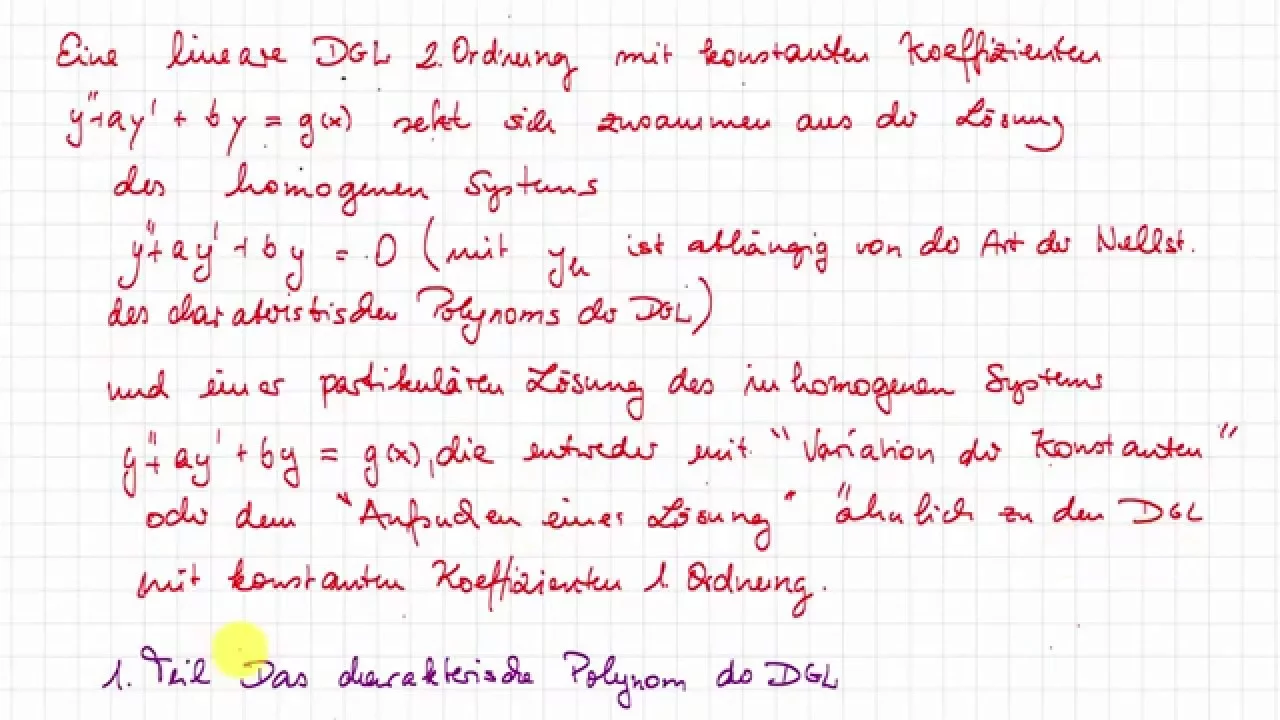 Eine lineare DGL 2. Ordnung mit konstanten Koeffizienten
y''+ay' + by = g(x) setzt sich zusammen aus der Lösung
des homogenen Systems
y''+ay' + by = 0 (mit yh ist abhängig von der Art der Nullst.
des charakteristischen Polynoms der DGL)
und einer partikulären Lösung des inhomogenen Systems
y''+ay' + by = g(x), die entweder mit "Variation der Konstanten"
oder dem "Aufsuchen einer Lösung" ähnlich zu den DGL
mit konstanten Koeffizienten 1. Ordnung.
1. Teil Das charakterische Polynom der DGL